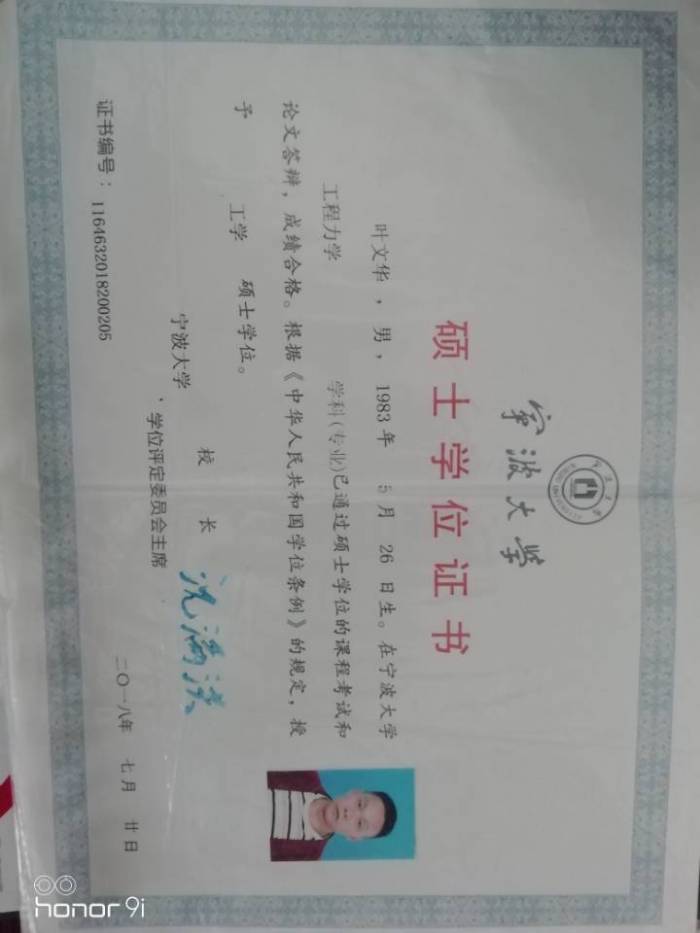 宁波大学
硕士学位证书
叶文华，男，1983年 5月 26日生。在宁波大学
工程力学 学科(专业)已通过硕士学位的课程考试和
论文答辩，成绩合格。根据《中华人民共和国学位条例》的规定，授
予 工学 硕士学位。
宁波大学 校 长
、学位评定委员会主席
沈满洪
证书编号：1164632018200205
二〇一八年 七月 廿日
honor 9i